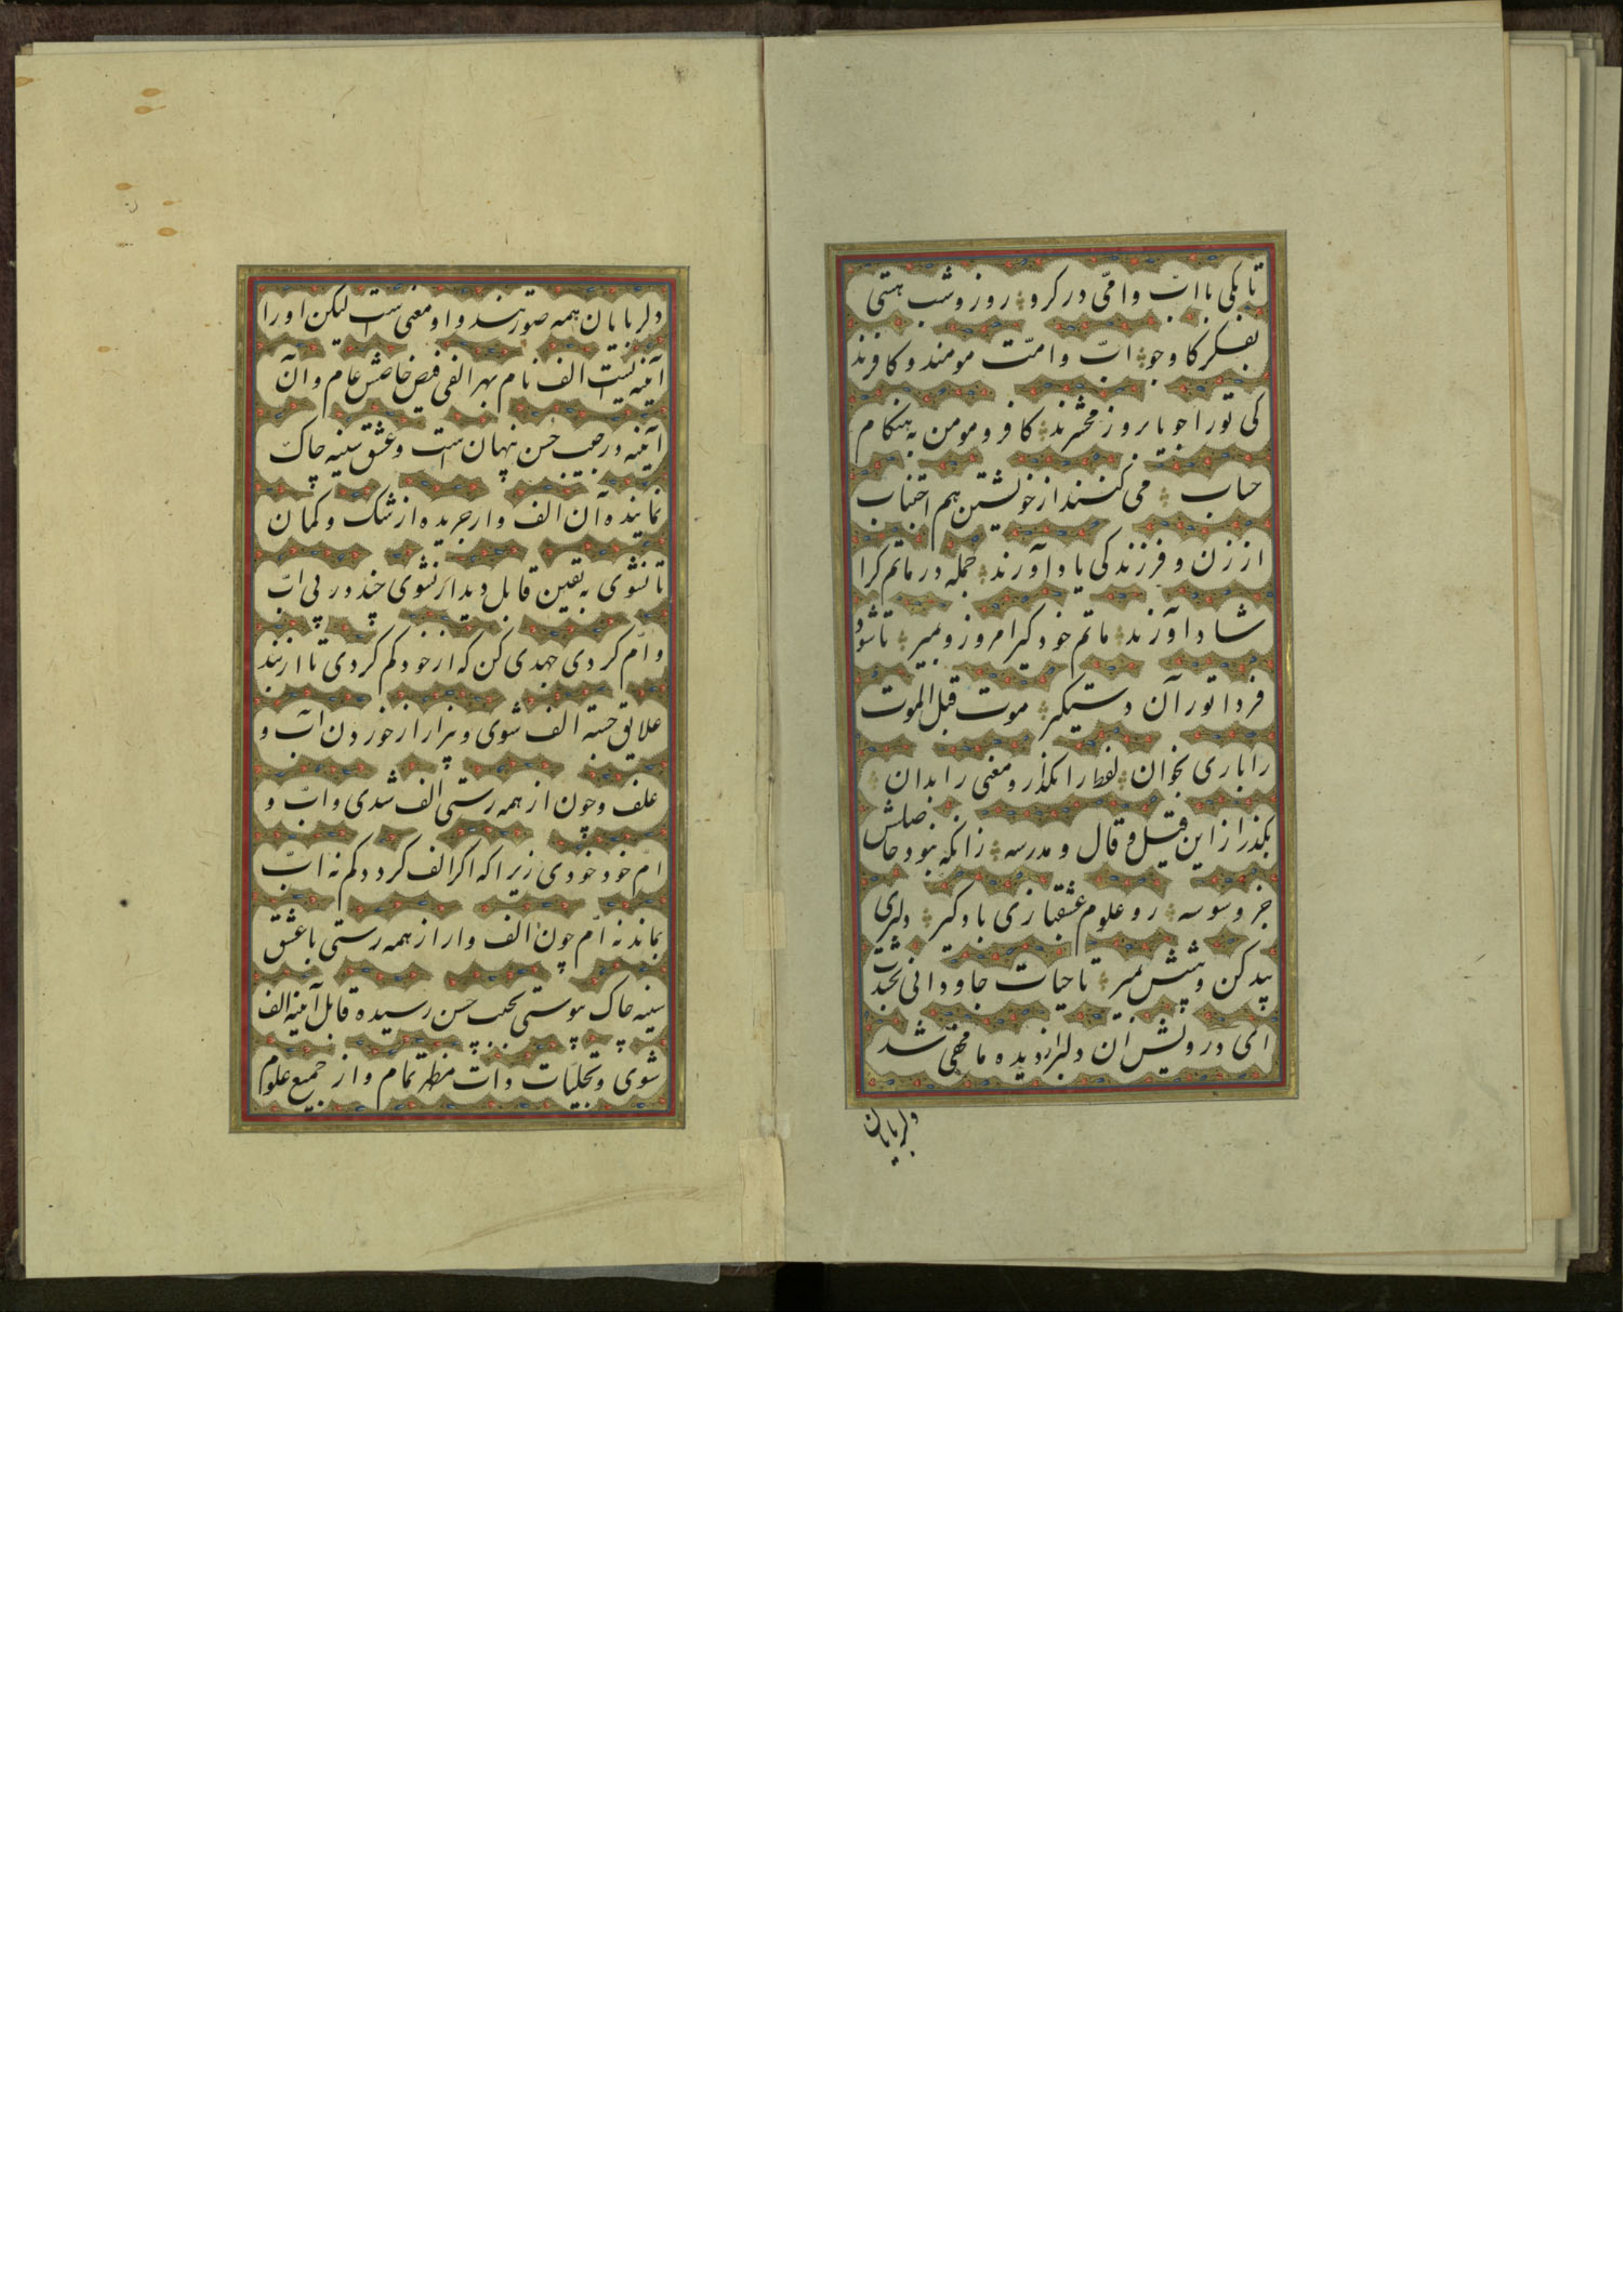 تا بکی با ابّ و امّی در کرو روز و شب هستی
بفکر کاو و جو ابّ و امّت مومند و کافرند
کی تو را جویا بروز محشرند کافر و مومن به هنکام
حساب می کنند از خویشتن هم اجتناب
از زن و فرزند کی یاد آورند جمله در ماتم کرا
شاد آورند ماتم خود کیر امروز و بمیر تا شود
فردا تو را آن دستکیر موت قبل الموت
را باری بخوان لفظ را بکذار و معنی را بدان
بکذر از این قیل و قال و مدرسه زانکه نبود حاصلش
جز وسوسه رو علوم عشقبازی یاد کیر دلبری
پید کن و پیشش بمیر تا حیات جاودانی بخشدت
ای درویش ان دلبر از دیده ما مخفی شد
دلربایان
دلربایان همه صورتند و او معنی ست لیکن او را
آینه ایست الف نام بهر الفی فیض خاصش عام و آن
آینه در جیب حسن نهان است و عشق سینه چاک
نماینده آن الف وار جریده از شک و کمان
تا نشوی به یقین قابل دیدار نشوی چند در پی ابّ
و امّ کردی جهدی کن که از خود کم کردی تا از بند
علایق جسته الف شوی و بیزار از خوردن آب و
علف و چون از همه رستی الف شدی و ابّ و
امّ خود خودی زیرا که اکر الف کردد کم نه ابّ
بماند نه امّ چون الف وار از همه رستی با عشق
سینه چاک پیوستی بجیب حسن رسیده قابل آینه الف
شوی و تجلیّات ذات مظهر تمام و از جمیع علوم